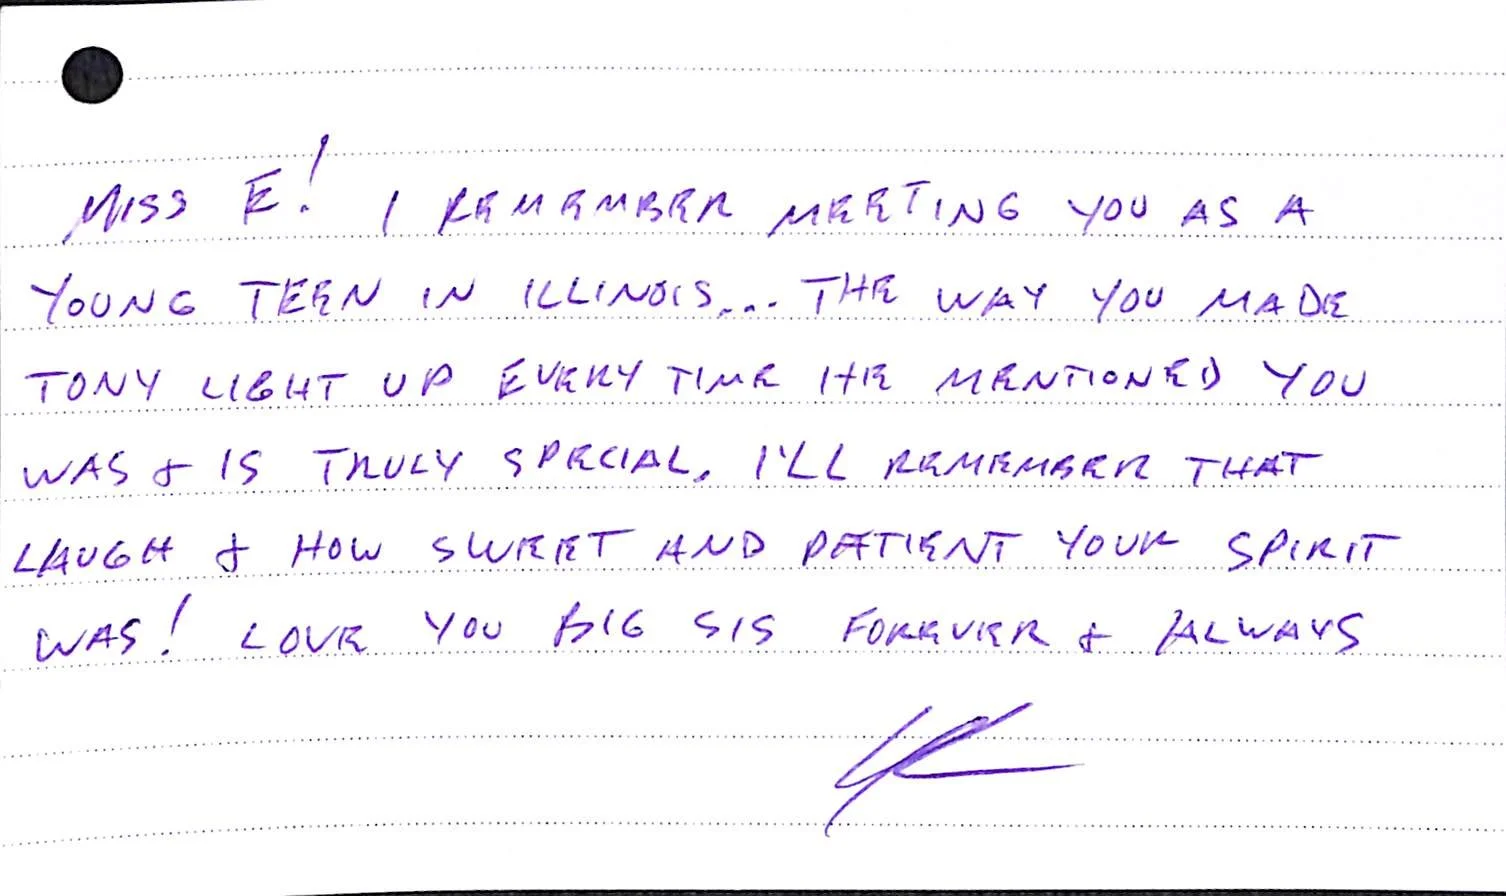 MISS E! I REMEMBER MEETING YOU AS A
YOUNG TEEN IN ILLINOIS... THE WAY YOU MADE
TONY LIGHT UP EVERY TIME HE MENTIONED YOU
WAS & IS TRULY SPECIAL, I'LL REMEMBER THAT
LAUGH & HOW SWEET AND PATIENT YOUR SPIRIT
WAS! LOVE YOU BIG SIS FOREVER & ALWAYS